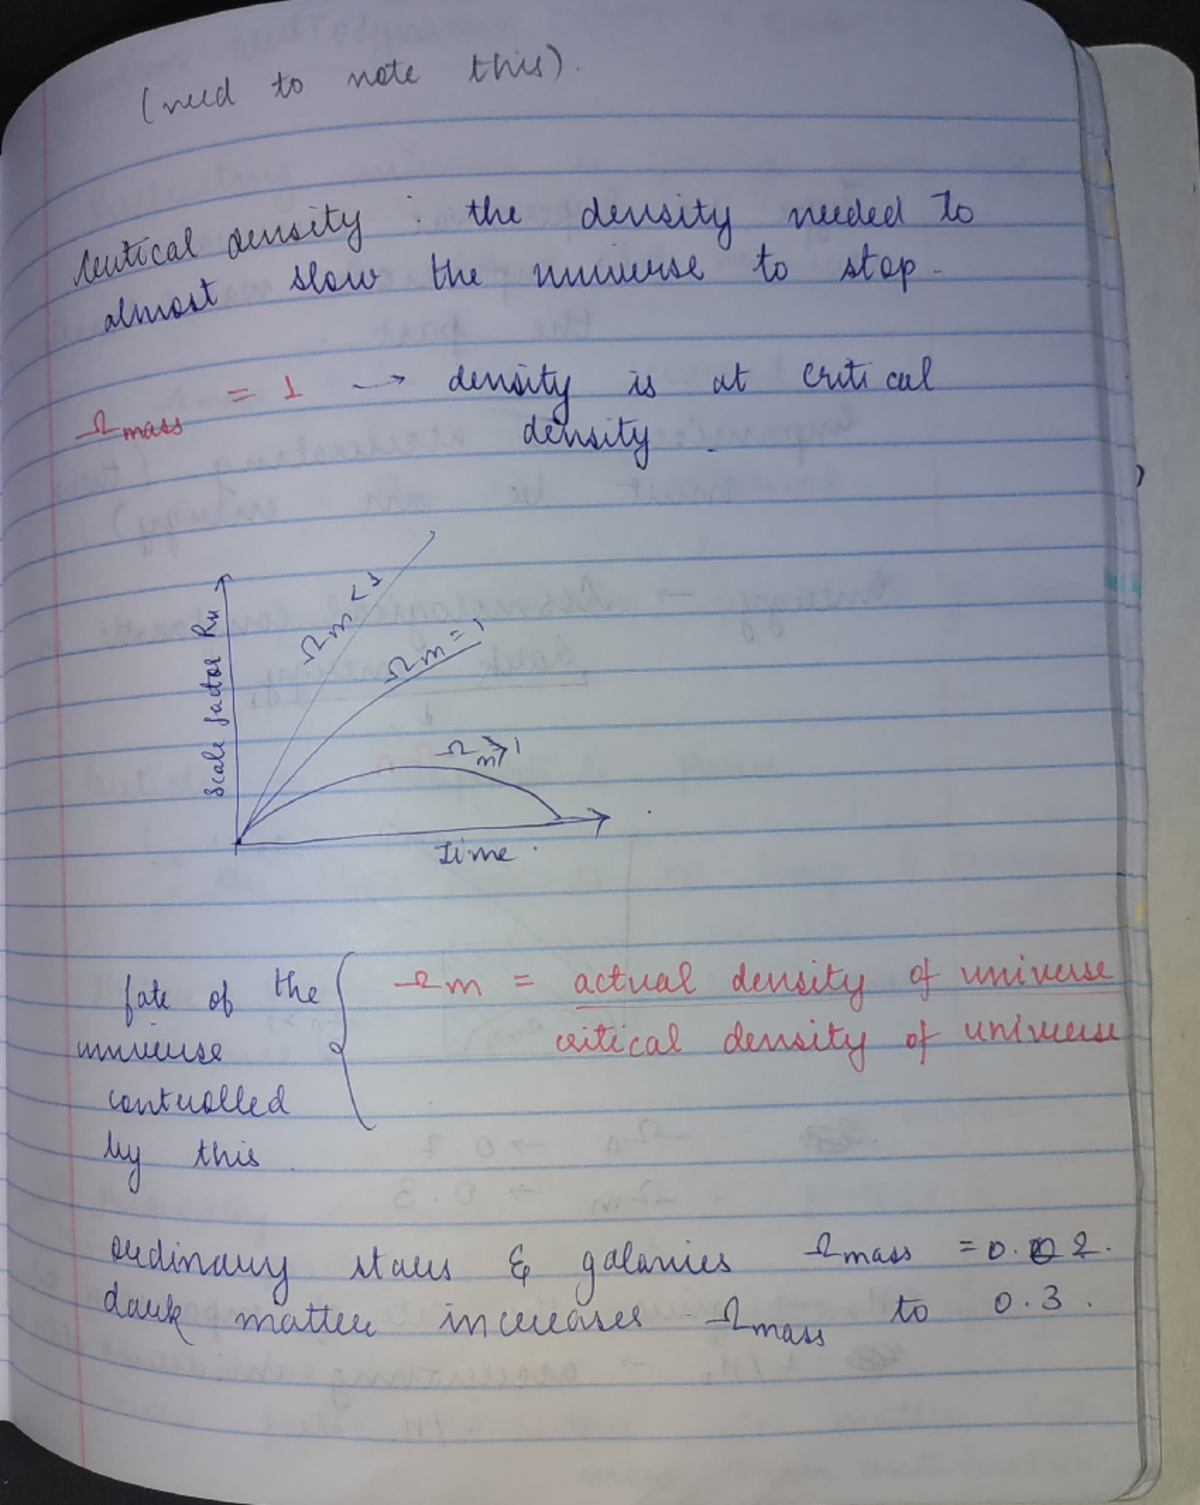 (need to note this).
Critical density : the density needed to
almost slow the universe to stop.
Ωmass = 1 → density is at critical
density.
Scale factor Ru
Ωm < 1
Ωm = 1
Ωm > 1
Time.
fate of the
universe
controlled
by this.
Ωm = actual density of universe
critical density of universe
ordinary stars & galaxies Ωmass = 0.02.
dark matter increases Ωmass to 0.3.